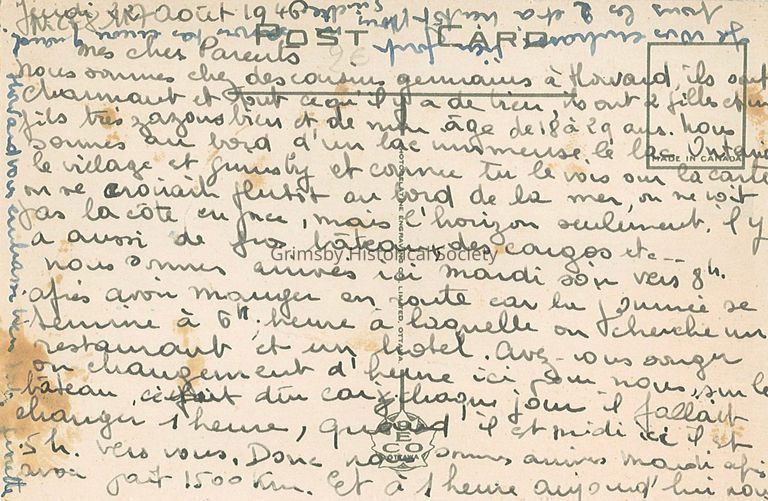 Jeudi 22 Août 1946
POST CARD
Mes chers Parents
nous sommes chez des cousins germains à Howard, ils sont
charmant et tout ce qu'il y a de bien, ils ont 2 filles et un
fils très zazous bien et de mon âge de 18 à 29 ans. Nous
sommes au bord d'un lac immense, le lac Ontario
le village et Grimsby et comme tu le vois sur la carte
on ne croirait plutôt au bord de la mer, on ne voit
pas la côte en face, mais l'horizon seulement. il y
a aussi de gros bâteaux, des cargos etc...
nous sommes arrivés ici mardi soir vers 8h.
après avoir manger en route car la journée se
termine à 6h, heure à laquelle on cherche un
restaurant et un hotel. Avez-vous songer
au changement d'heure ici, pour nous, sur le
bâteau, chaque jour il fallait
changer 1 heure, quand il est midi ici il est
5 h. vers vous. Donc nous sommes arrivés mardi après
avoir fait 1500 Km. Et à 1 heure aujourd'hui nous
Je vous embrasse
tous les 2 et à bientôt
Howard vous embrasse bien
Ginette
MADE IN CANADA
PHOTOGELATINE ENGRAVING CO. LIMITED, OTTAWA
PECO
OTTAWA
Grimsby Historical Society